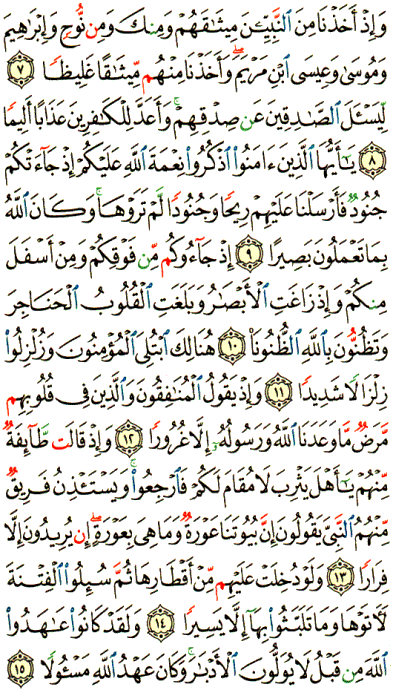 وَإِذْ أَخَذْنَا مِنَ ٱلنَّبِيِّـۧنَ مِيثَـٰقَهُمْ وَمِنكَ وَمِن نُّوحٍ وَإِبْرَٰهِيمَ
وَمُوسَىٰ وَعِيسَى ٱبْنِ مَرْيَمَ ۖ وَأَخَذْنَا مِنْهُم مِّيثَـٰقًا غَلِيظًا ٧
لِّيَسْـَٔلَ ٱلصَّـٰدِقِينَ عَن صِدْقِهِمْ ۚ وَأَعَدَّ لِلْكَـٰفِرِينَ عَذَابًا أَلِيمًا
٨ يَـٰٓأَيُّهَا ٱلَّذِينَ ءَامَنُوا۟ ٱذْكُرُوا۟ نِعْمَةَ ٱللَّهِ عَلَيْكُمْ إِذْ جَآءَتْكُمْ
جُنُودٌ فَأَرْسَلْنَا عَلَيْهِمْ رِيحًا وَجُنُودًا لَّمْ تَرَوْهَا ۚ وَكَانَ ٱللَّهُ
بِمَا تَعْمَلُونَ بَصِيرًا ٩ إِذْ جَآءُوكُم مِّن فَوْقِكُمْ وَمِنْ أَسْفَلَ
مِنكُمْ وَإِذْ زَاغَتِ ٱلْأَبْصَـٰرُ وَبَلَغَتِ ٱلْقُلُوبُ ٱلْحَنَاجِرَ
وَتَظُنُّونَ بِٱللَّهِ ٱلظُّنُونَا۠ ١٠ هُنَالِكَ ٱبْتُلِىَ ٱلْمُؤْمِنُونَ وَزُلْزِلُوا۟
زِلْزَالًا شَدِيدًا ١١ وَإِذْ يَقُولُ ٱلْمُنَـٰفِقُونَ وَٱلَّذِينَ فِى قُلُوبِهِم
مَّرَضٌ مَّا وَعَدَنَا ٱللَّهُ وَرَسُولُهُۥٓ إِلَّا غُرُورًا ١٢ وَإِذْ قَالَت طَّآئِفَةٌ
مِّنْهُمْ يَـٰٓأَهْلَ يَثْرِبَ لَا مُقَامَ لَكُمْ فَٱرْجِعُوا۟ ۚ وَيَسْتَـْٔذِنُ فَرِيقٌ
مِّنْهُمُ ٱلنَّبِىَّ يَقُولُونَ إِنَّ بُيُوتَنَا عَوْرَةٌ وَمَا هِىَ بِعَوْرَةٍ ۖ إِن يُرِيدُونَ إِلَّا
فِرَارًا ١٣ وَلَوْ دُخِلَتْ عَلَيْهِم مِّنْ أَقْطَارِهَا ثُمَّ سُئِلُوا۟ ٱلْفِتْنَةَ
لَـَٔاتَوْهَا وَمَا تَلَبَّثُوا۟ بِهَآ إِلَّا يَسِيرًا ١٤ وَلَقَدْ كَانُوا۟ عَـٰهَدُوا۟
ٱللَّهَ مِن قَبْلُ لَا يُوَلُّونَ ٱلْأَدْبَـٰرَ ۚ وَكَانَ عَهْدُ ٱللَّهِ مَسْـُٔولًا ١٥